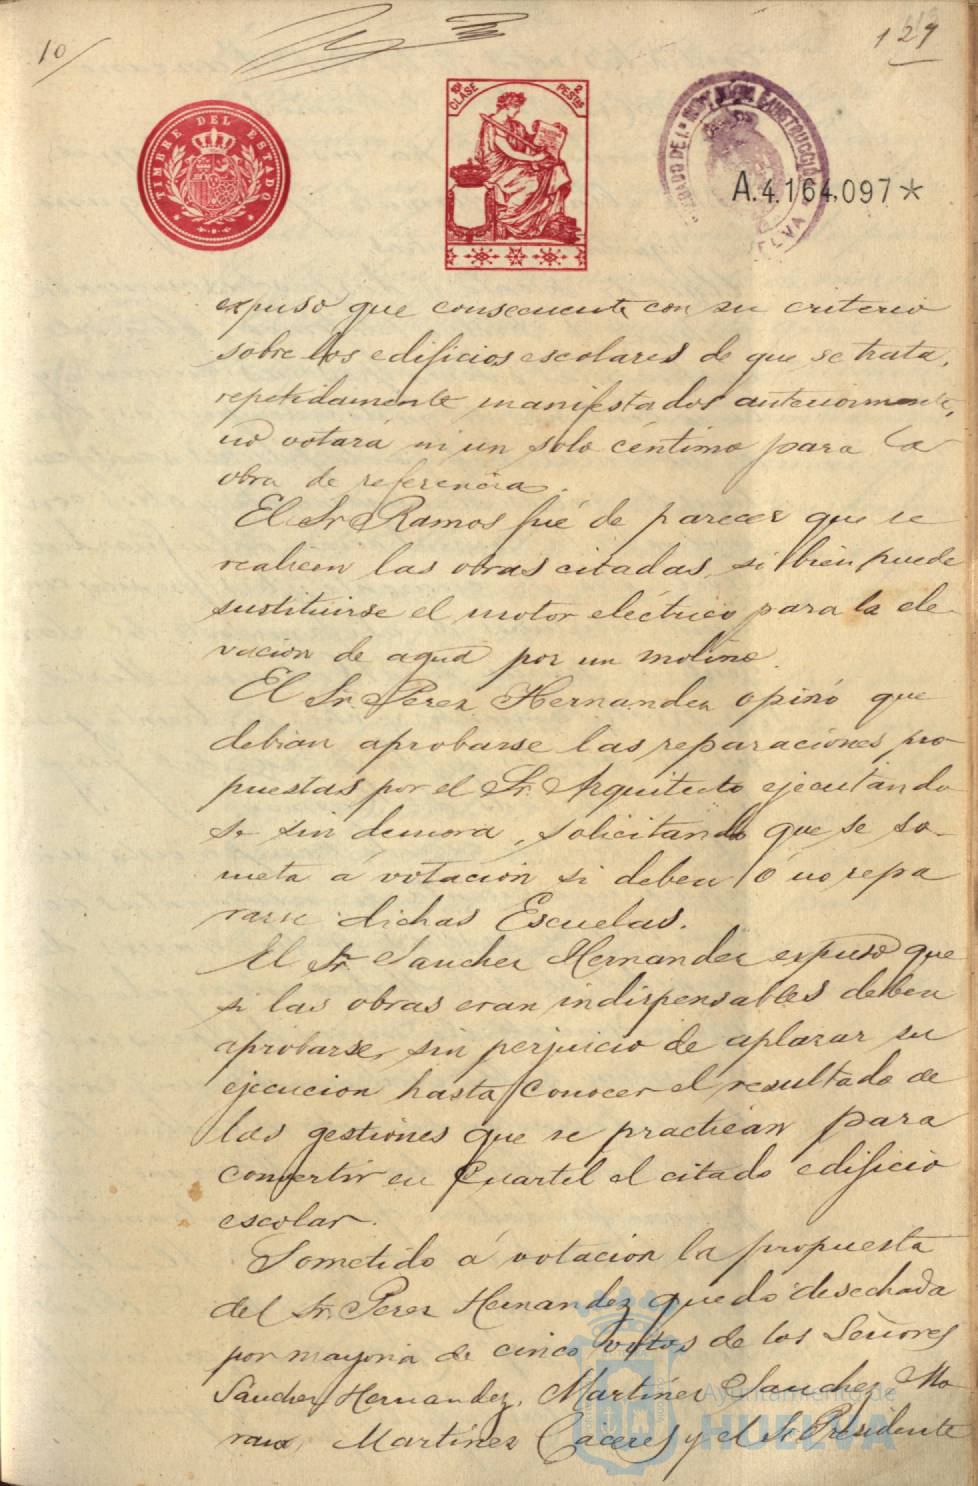 10
127
TIMBRE DEL ESTADO
10ª CLASE
2 PESTAS
A.4.164,097*
expuso que consecuente con su criterio
sobre los edificios escolares de que se trata,
repetidamente manifestados anteriormente,
no votará ni un solo céntimo para la
obra de referencia.
El Sr. Ramos fué de parecer que se
realicen las obras citadas, si bien puede
sustituirse el motor eléctrico para la ele-
vacion de agua por un molino.
El Sr. Perez Hernandez opinó que
debian aprobarse las reparaciones pro
puestas por el Sr. Arquitecto ejecutando
se sin demora, solicitando que se so-
meta á votacion si deben ó no repa
rarse dichas Escuelas.
El Sr. Sanchez Hernandez expuso que
si las obras eran indispensables deben
aprobarse, sin perjuicio de aplazar su
ejecucion hasta conocer el resultado de
las gestiones que se practican para
convertir en Cuartel el citado edificio
escolar.
Sometido á votacion la propuesta
del Sr. Perez Hernandez quedó desechada
por mayoria de cinco votos de los Señores
Sanchez Hernandez, Martinez Sanchez, Mo
rano, Martinez Caceres y el Sr. Presidente
Ayuntamiento de
HUELVA